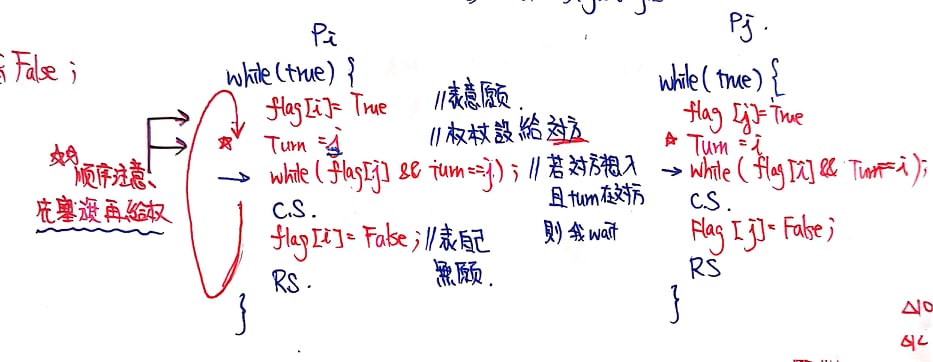 False ;
Pi
while (true) {
flag[i] = True //表意願.
Turn = j //权杖設給对方
while (flag[j] && turn==j) ; //若对方想入
且turn在对方
則我wait
C.S.
flag[i] = False ; //表自己
無願.
RS.
}
順序注意、
再給权
Pj.
while (true) {
flag [j]=True
Turn = i
while (flag[i] && Turn==i);
C.S.
Flag [j]=False;
RS
}